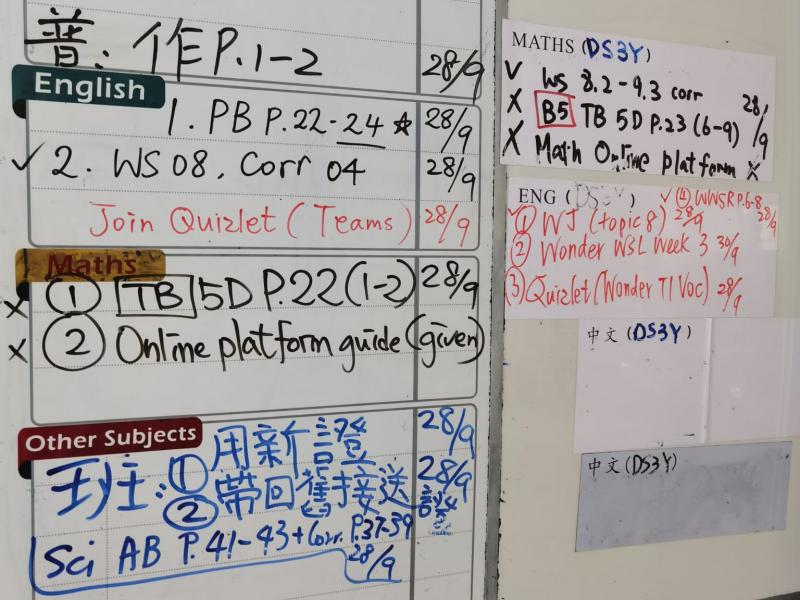 普: 作P.1-2 28/9
English
1. PB P.22-24 ☆ 28/9
✓ 2. WS 08, Corr 04 28/9
Join Quizlet (Teams) 28/9
Maths
X ① TB 5D P.22 (1-2) 28/9
X ② Online platform guide (given)
Other Subjects
班主: ① 用新證 28/9
② 帶回舊接送證 28/9
Sci AB P.41-43 + Corr. P.37-39
28/9
MATHS (DS3Y)
✓ WS 8.2-9.3 corr 28/9
X B5 TB 5D P.23 (6-9)
X Math Online platform X
ENG (DS3Y) ✓ ④ WWSR P.6-8 28/9
✓ ① WJ (topic 8) 28/9
② Wonder WSL Week 3 30/9
③ Quizlet (Wonder T1 Voc) 28/9
中文 (DS3Y)
中文 (DS3Y)